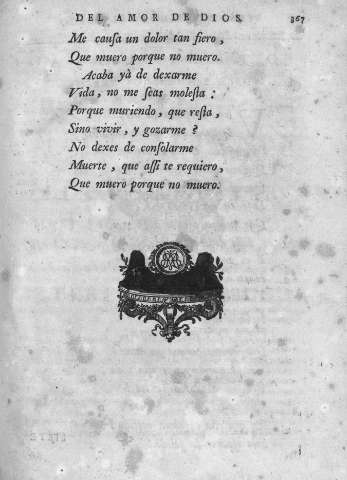 DEL AMOR DE DIOS. 367
Me cauſa un dolor tan fiero,
Que muero porque no muero.
Acaba yà de dexarme
Vida, no me ſeas moleſta:
Porque muriendo, que reſta,
Sino vivir, y gozarme?
No dexes de conſolarme
Muerte, que aſſi te requiero,
Que muero porque no muero.